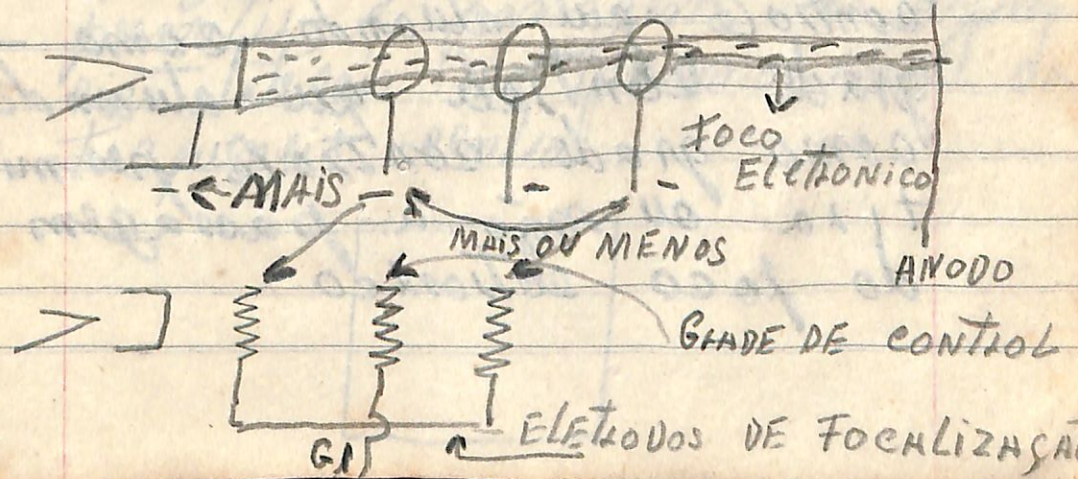 FOCO
ELETRONICO
- MAIS - - -
MAIS OU MENOS
ANODO
GRADE DE CONTROL
ELETRODOS DE FOCALIZAÇÃ
G1